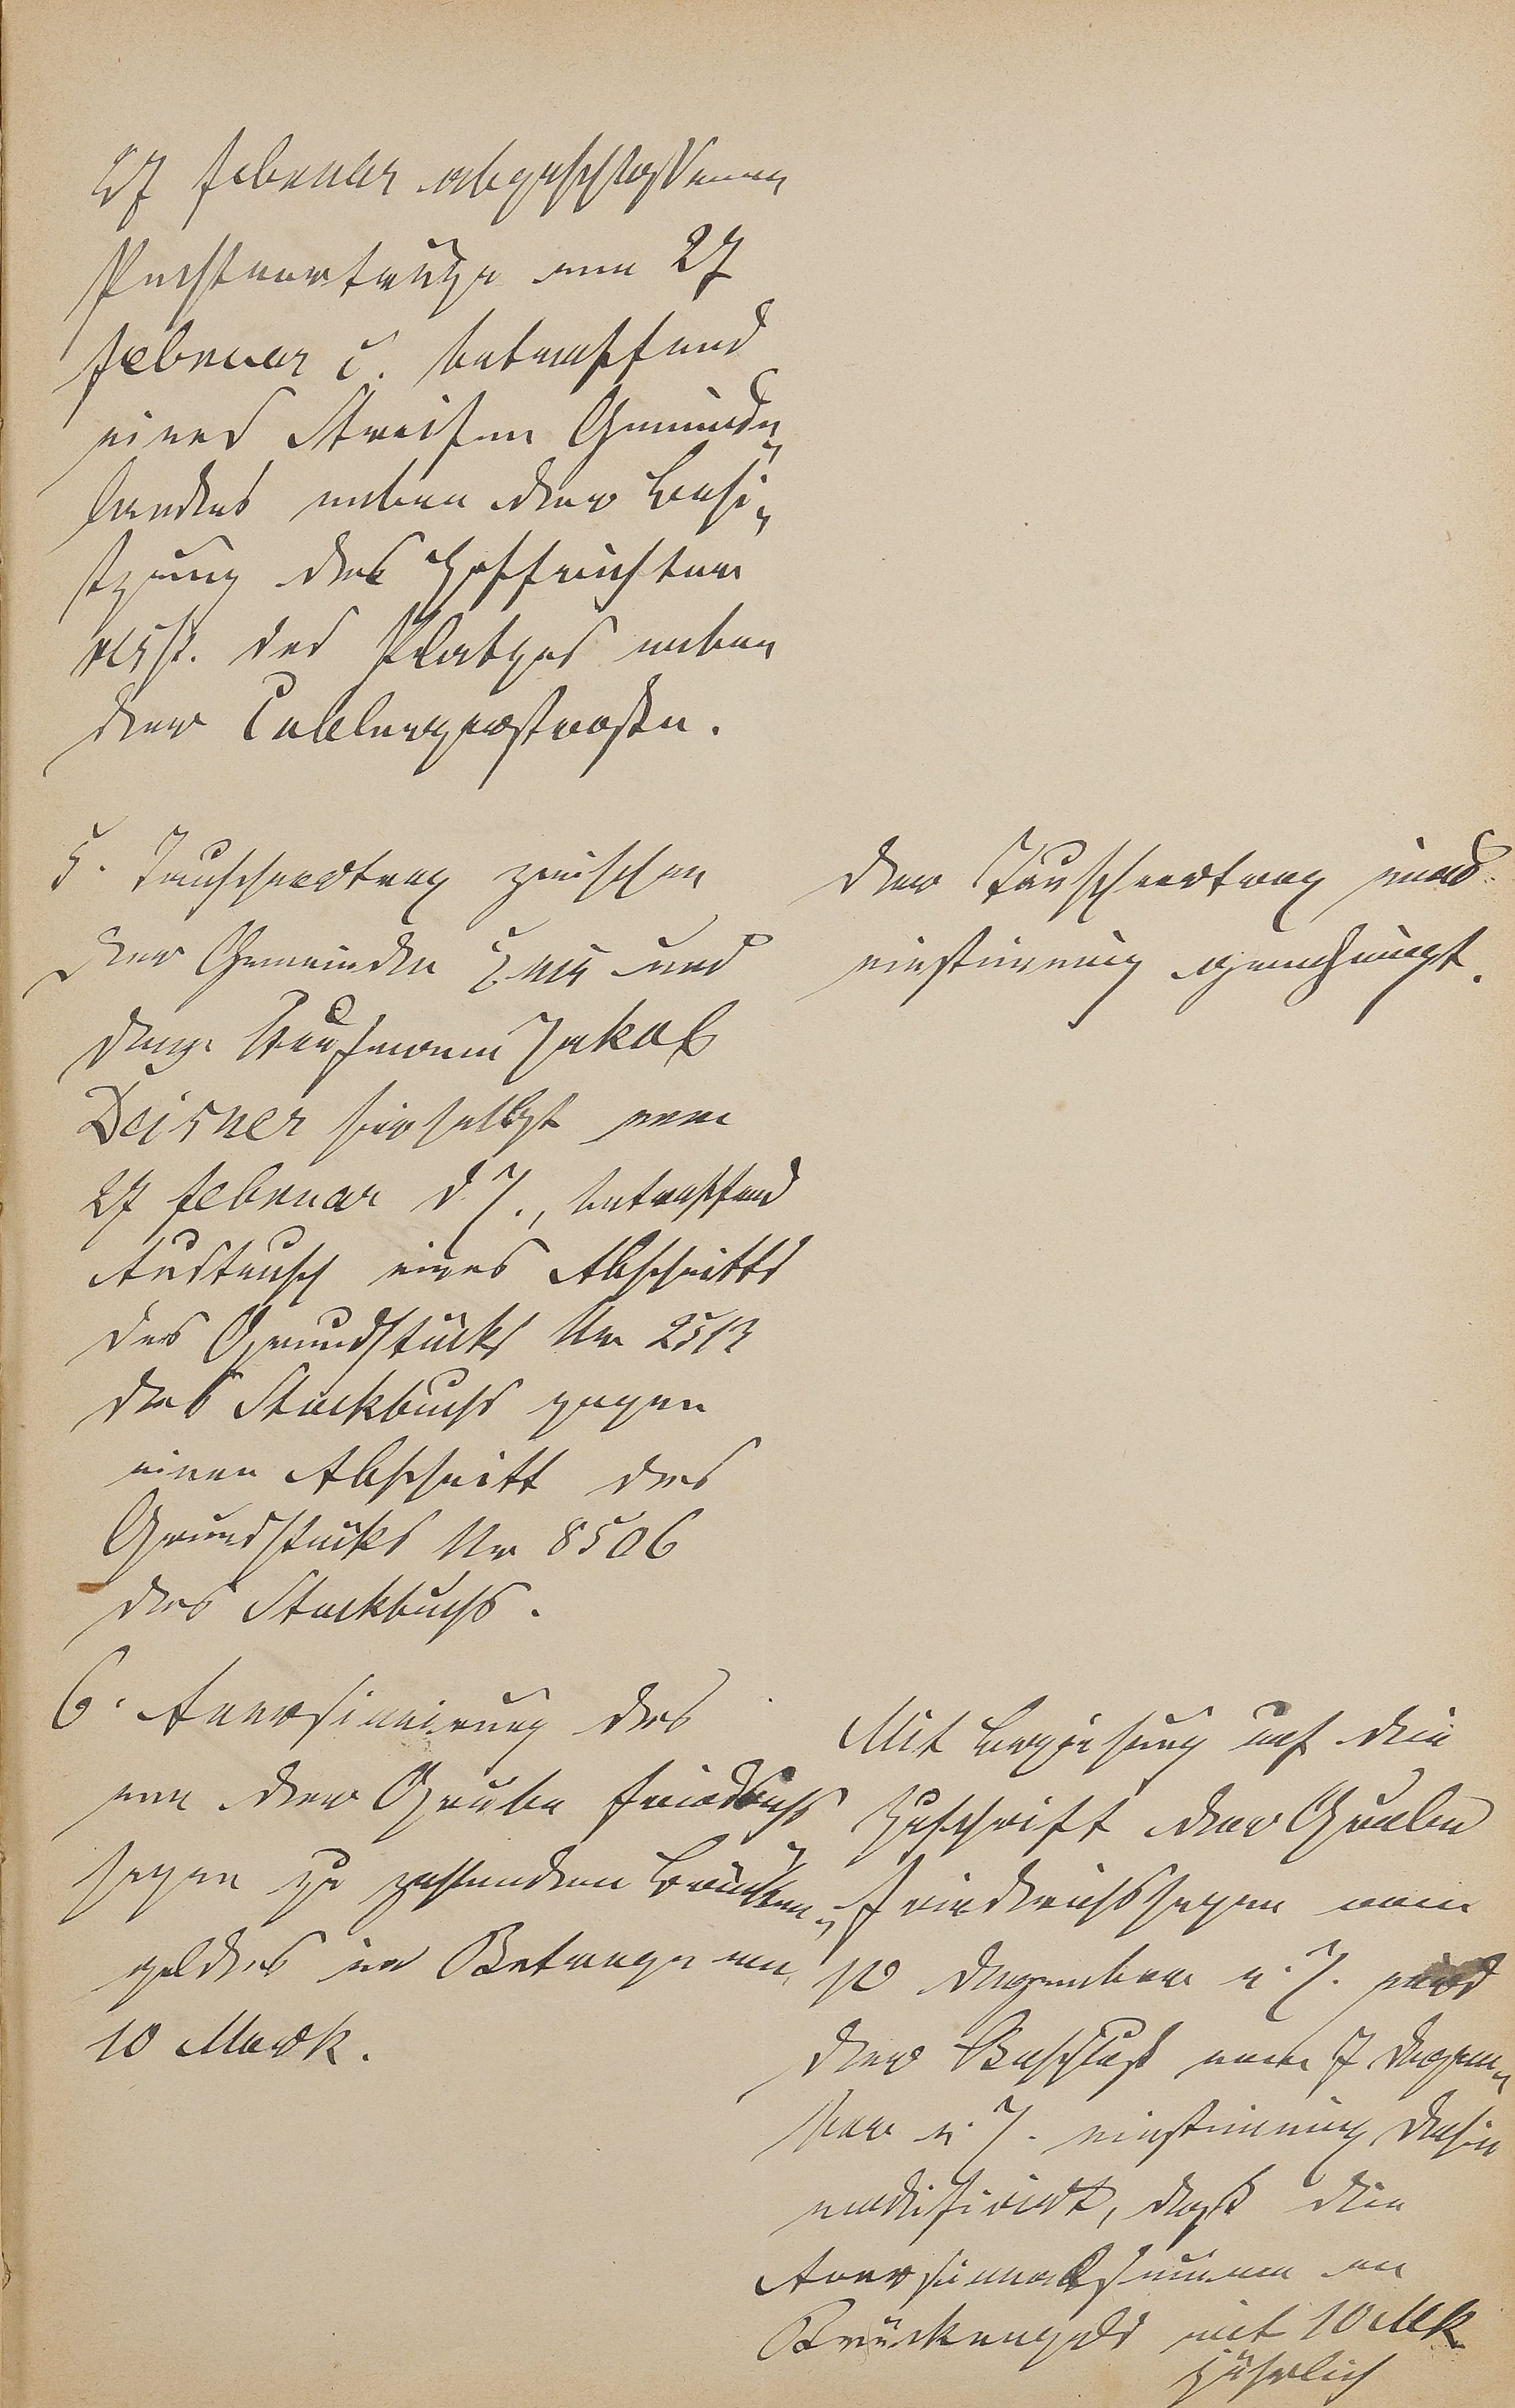 27 Februar abgeschlossenen
Pachtvertrags vom 27
Februar c. betreffend
eines Streifen Gemeinde-
landes neben der Besi-
tzung des Hoffrichter
resp. des Platzes neben
der Coblenzerstraße.
5. Tauschvertrag zwischen
der Gemeinde Ems und
dem Kaufmann Jakob
Deisner hierselbst vom
27 Februar d. J., betreffend
Austausch eines Abschnitts
des Grundstücks No 2513
des Stockbuchs gegen
einen Abschnitt des
Grundstücks No 8506
des Stockbuchs.
Der Tauschvertrag wird
einstimmig genehmigt.
6. Aversionirung des
von der Grube Friedrichs
segen zu zahlenden Brücken-
geldes im Betrage von
10 Mark.
Mit Beziehung auf die
Zuschrift der Grube
Friedrichssegen vom
10 Dezember v. J. wird
der Beschluß vom 7 Dezem-
ber v. J. einstimmig dahin
modifizirt, daß die
Aversionalsumme an
Brückengeld mit 10 Mk
jährlich